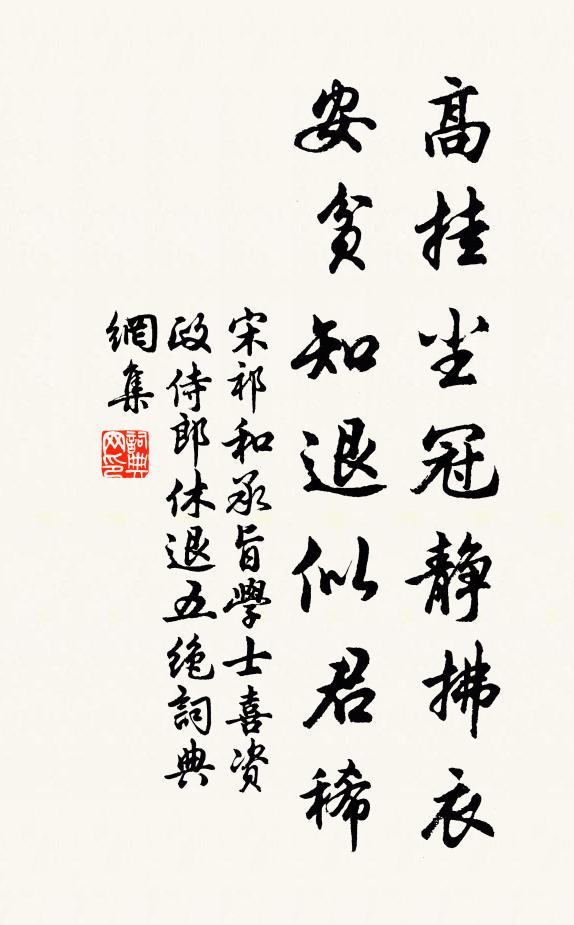 高挂尘冠静拂衣
安贫知退似君稀
宋祁和承旨學士喜资
政侍郎休退五绝詞典
網集
詞典网印